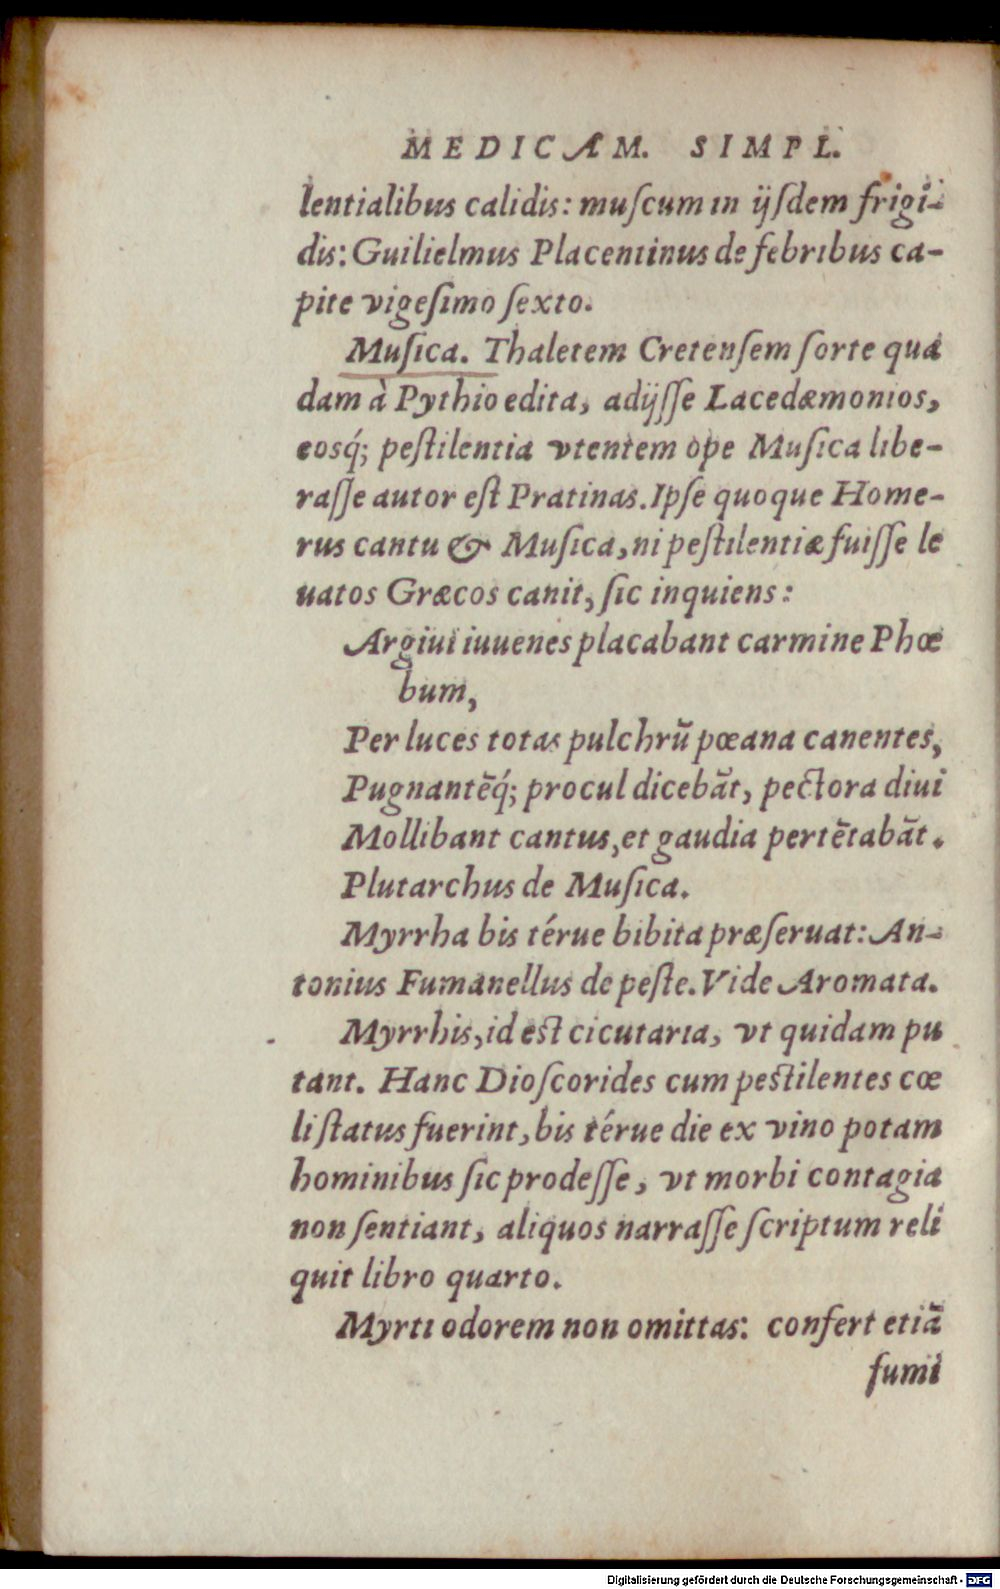 MEDICAM. SIMPL.
lentialibus calidis: muſcum in ijſdem frigi-
dis: Guilielmus Placentinus de febribus ca-
pite vigeſimo ſexto.
Muſica. Thaletem Cretenſem ſorte qua
dam à Pythio edita, adijſſe Lacedæmonios,
eosq́; peſtilentia vtentem ope Muſica libe-
raſſe autor eſt Pratinas. Ipſe quoque Home-
rus cantu & Muſica, ni peſtilentiæ fuiſſe le
uatos Græcos canit, ſic inquiens:
Argiui iuuenes placabant carmine Phœ
bum,
Per luces totas pulchrũ pœana canentes,
Pugnantẽq́; procul dicebãt, pectora diui
Mollibant cantus, et gaudia pertẽtabãt.
Plutarchus de Muſica.
Myrrha bis térue bibita præſeruat: An-
tonius Fumanellus de peſte. Vide Aromata.
Myrrhis, id eſt cicutaria, vt quidam pu
tant. Hanc Dioſcorides cum peſtilentes cœ
li ſtatus fuerint, bis térue die ex vino potam
hominibus ſic prodeſſe, vt morbi contagia
non ſentiant, aliquos narraſſe ſcriptum reli
quit libro quarto.
Myrti odorem non omittas: confert etiã
fumi
Digitalisierung gefördert durch die Deutsche Forschungsgemeinschaft - DFG